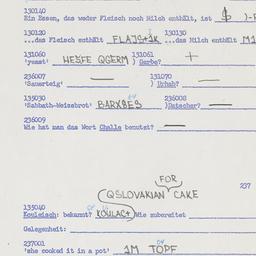 130140
Ein Essen, das weder Fleisch noch Milch enthält, ist $ )-P
130120 130130
...das Fleisch enthält FLAJS+IK ...das Milch enthält MI
131060 131061
'yeast' HESFE QGERM ) Gerbe? +
236007 131070
'Sauerteig' — ) Urhab? —
135030 236008
'Sabbath-Weissbrot' BARXSES )Datscher? —
236009
Wie hat man das Wort Challe benutzt? —
FOR
QSLOVAKIAN CAKE
237
135040
Kouleisch: bekannt? KOULAC+ Wie zubereitet
Gelegenheit:
237001
'she cooked it in a pot' IM TOPF